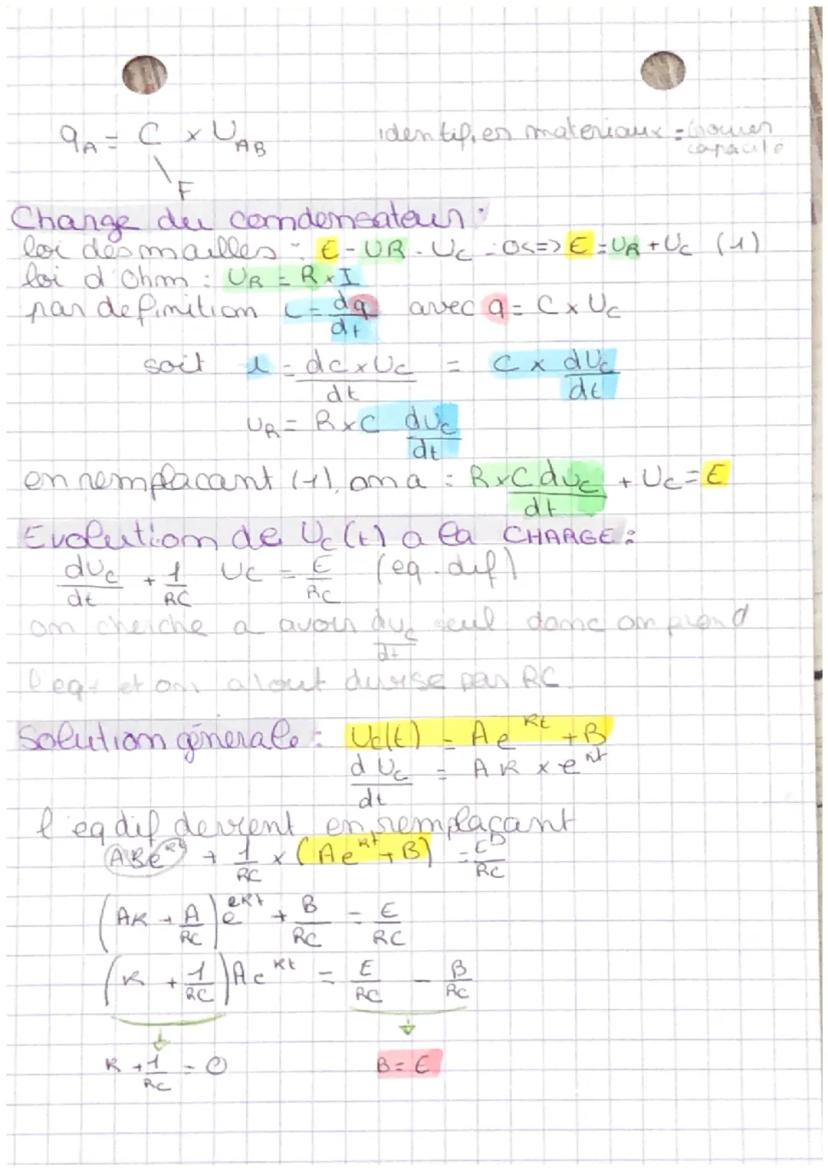 qA = C × UAB identifier materiaux = trouver
capacite
F
Charge du condensateur :
loi des mailles : E - UR - Uc = 0 <=> E = UR + Uc (1)
loi d'Ohm : UR = R × I
par definition i = dq/dt avec q = C × Uc
soit i = dc × Uc/dt = C × dUc/dt
UR = R × C duc/dt
en remplacant (1), on a : R × C duc/dt + Uc = E
Evolution de Uc(t) a la CHARGE :
duc/dt + 1/RC Uc = E/RC (eq. dif)
on cherche a avoir duc/dt seul donc on prend
l'eq et on divise par RC
Solution génerale : Uc(t) = Ae^Kt + B
dUc/dt = AK × e^Kt
l'eq dif devient en remplaçant
AKe^Kt + 1/RC × (Ae^Kt + B) = E/RC
(AK + A/RC) e^Kt + B/RC = E/RC
(K + 1/RC) Ae^Kt = E/RC - B/RC
K + 1/RC = 0 B = E